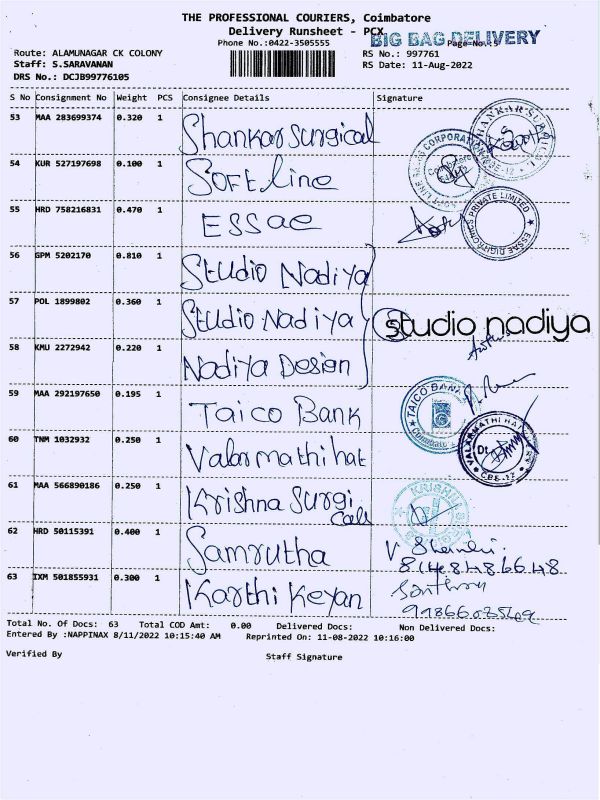 THE PROFESSIONAL COURIERS, Coimbatore
Delivery Runsheet - PCX
BIG BAG DELIVERY
Phone No.:0422-3505555
Page No.: 5
Route: ALAMUNAGAR CK COLONY
RS No.: 997761
Staff: S.SARAVANAN
RS Date: 11-Aug-2022
DRS No.: DCJB99776105
S No Consignment No Weight PCS Consignee Details Signature
53 MAA 283699374 0.320 1 Shankar Surgical
54 KUR 527197698 0.100 1 SOFT Line
55 HRD 758216831 0.470 1 ESSae
ESSAE DIGITRONICS PRIVATE LIMITED
56 GPM 5202170 0.810 1 Studio Nadiya
57 POL 1899802 0.360 1 Studio Nadiya
studio nadiya
58 KMU 2272942 0.220 1 Nadiya Design
59 MAA 292197650 0.195 1 Taico Bank
TAICO BANK
Coimbatore
60 TNM 1032932 0.250 1 Valarmathi hat
61 MAA 566890186 0.250 1 Krishna Surgi
cals
62 HRD 50115391 0.400 1 Samrutha
63 IXM 501855931 0.300 1 Karthi Keyan
Total No. Of Docs: 63 Total COD Amt: 0.00 Delivered Docs: Non Delivered Docs:
Entered By :NAPPINAX 8/11/2022 10:15:40 AM Reprinted On: 11-08-2022 10:16:00
Verified By Staff Signature